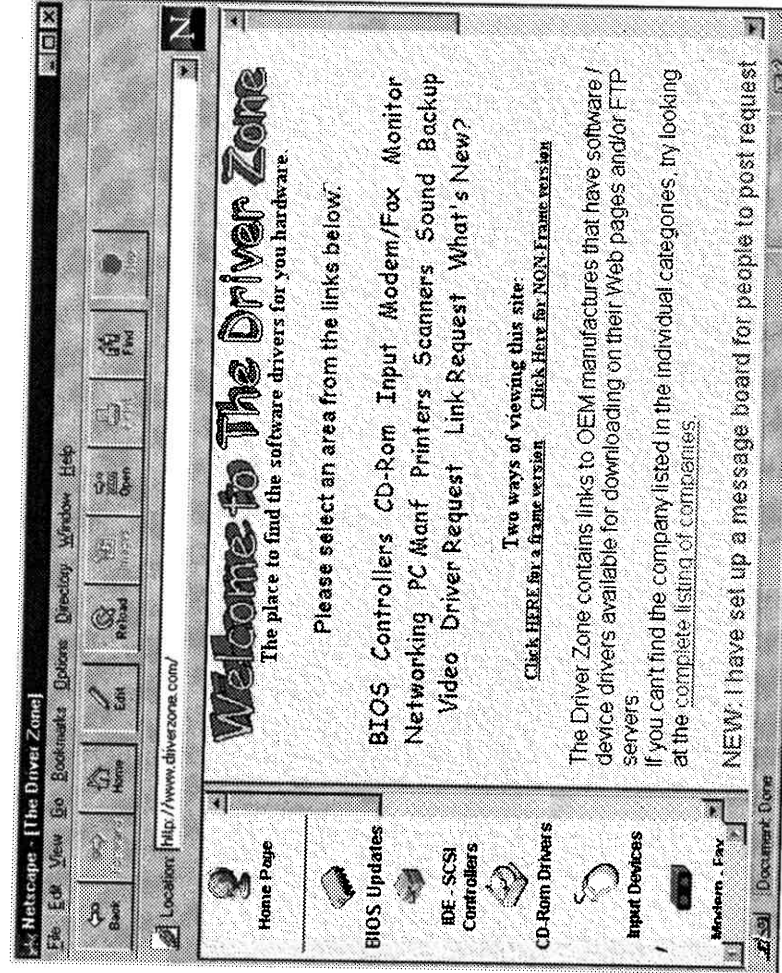 Netscape - [The Driver Zone]
File Edit View Go Bookmarks Options Directory Window Help
Back Forward Home Edit Reload Images Open Print Find Stop
Location: http://www.driverzone.com/
N
Home Page
BIOS Updates
IDE - SCSI
Controllers
CD-Rom Drivers
Input Devices
Modem - Fax
Welcome to The Driver Zone
The place to find the software drivers for you hardware.
Please select an area from the links below.
BIOS Controllers CD-Rom Input Modem/Fax Monitor
Networking PC Manf Printers Scanners Sound Backup
Video Driver Request Link Request What's New?
Two ways of viewing this site:
Click HERE for a frame version Click Here for NON-Frame version
The Driver Zone contains links to OEM manufactures that have software /
device drivers available for downloading on their Web pages and/or FTP
servers
If you can't find the company listed in the individual categories, try looking
at the complete listing of companies.
NEW: I have set up a message board for people to post request
Document: Done